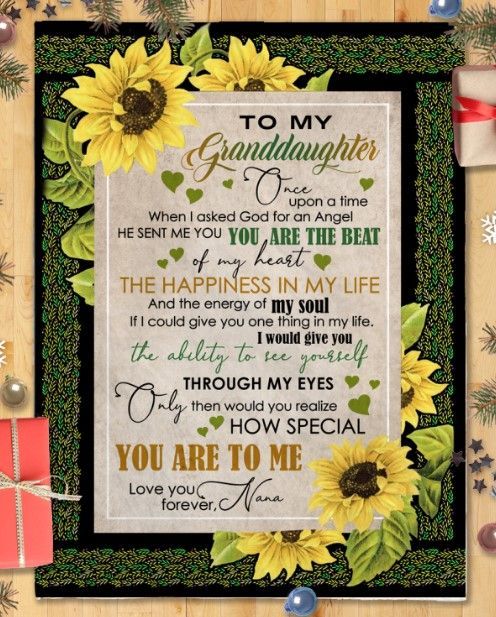 TO MY
Granddaughter
Once
upon a time
When I asked God for an Angel
HE SENT ME YOU YOU ARE THE BEAT
of my heart
THE HAPPINESS IN MY LIFE
And the energy of my soul
If I could give you one thing in my life.
I would give you
the ability to see yourself
THROUGH MY EYES
Only then would you realize
HOW SPECIAL
YOU ARE TO ME
Love you
forever, Nana